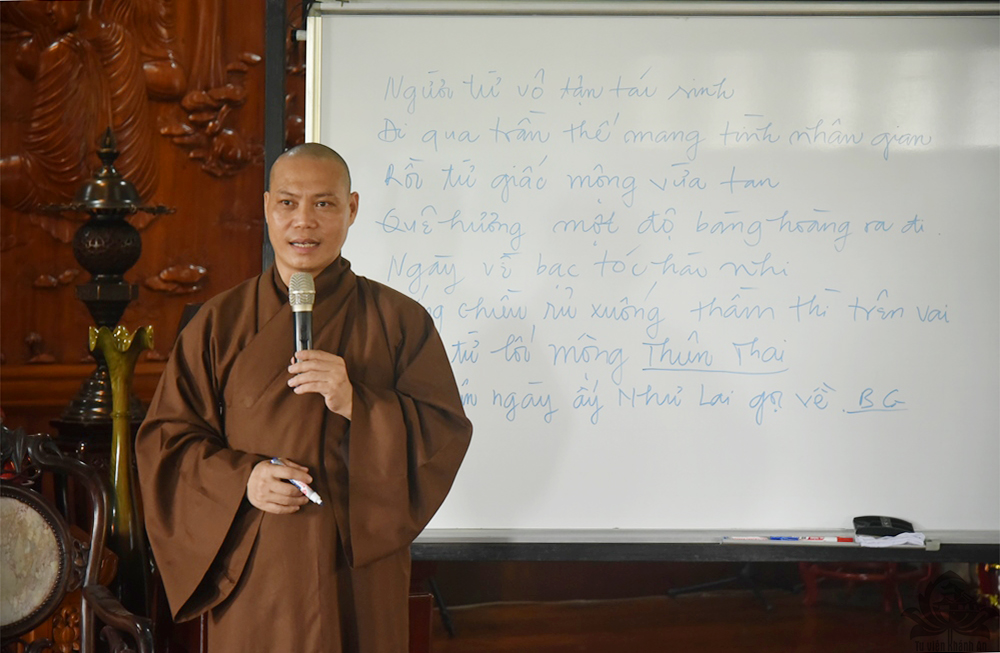 Người từ vô tận tái sinh
Đi qua trần thế mang tình nhân gian
Rồi từ giấc mộng vừa tan
Quê hương một độ bàng hoàng ra đi.
Ngày về bạc tóc hài nhi
chiều rủ xuống thầm thì trên vai
từ lối mộng Thiên Thai
ngày ấy Như Lai gọi về. BG